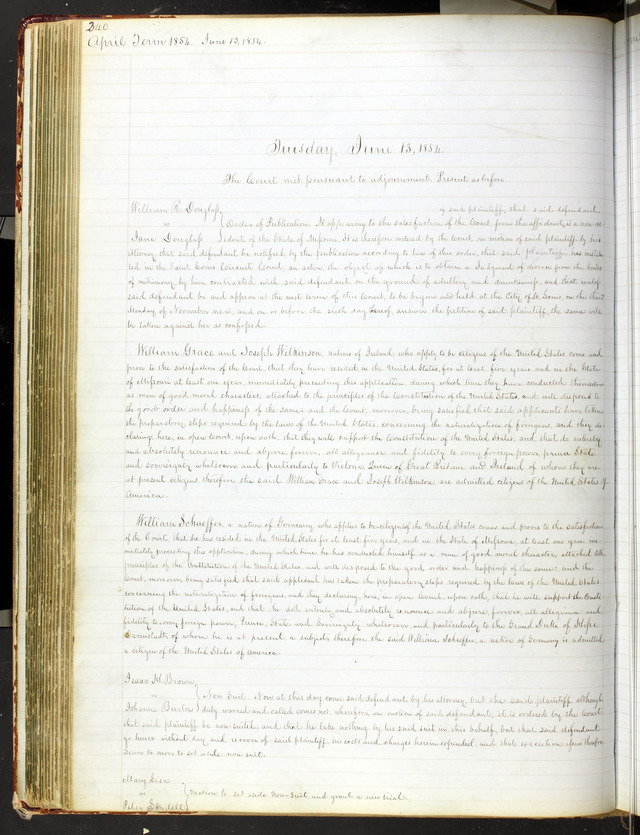 240
April Term 1854. June 13, 1854.
Tuesday, June 13, 1854.
The Court met pursuant to adjournment. Present as before
William R. Douglass of said plaintiff, that said defendant
" Order of Publication. It appearing to the satisfaction of the Court from the affidavit, is a non res-
Jane Douglass ident of the State of Missouri. It is therefore ordered by the Court on motion of said plaintiff by his
Attorney that said defendant be notified by the publication according to law of this order, that said plaintiff has institu
ted in the Saint Louis Circuit Court, an action, the object of which is to obtain a Judgment of divorce from the bonds
of matrimony by him contracted with said defendant on the ground of adultery and and that unless
said defendant be and appear at the next term of this Court, to be begun and held at the City of St. Louis, on the third
Monday of November next, and on or before the sixth day thereof, answer the petition of said plaintiff, the same will
be taken against her as confessed.
William Grace and Joseph Wilkinson, natives of Ireland, who apply to be citizens of the United States come and
prove to the satisfaction of the Court, that they have resided in the United States, for at least five years, and in the State
of Missouri at least one year, immediately preceding this application, during which time they have conducted themselves
as men of good moral character, attached to the principles of the Constitution of the United States, and well disposed to
the good order and happiness of the same: and the Court, moreover, being satisfied that said applicants have taken
the preparatory steps required by the laws of the United States, concerning the naturalization of foreigners, and they de-
claring here, in open Court, upon oath, that they will support the Constitution of the United States, and that do entirely
and absolutely renounce and abjure forever, all allegiance and fidelity to every foreign power, prince State
and sovereignty whatsoever and particularly to Victoria Queen of Great Britain and Ireland of whom they are
at present citizens therefore the said William Grace and Joseph Wilkinson are admitted citizens of the United States of
America.
William Schaeffer, a native of Germany who applies to be citizen of the United States comes and proves to the satisfaction
of the Court that he has resided in the United States for at least five years, and in the State of Missouri, at least one year im-
mediately preceding this application, during which time he has conducted himself as a man of good moral character, attached to the
principles of the Constitution of the United States, and well disposed to the good order and happiness of the same: and the
Court, moreover being satisfied that said applicant has taken the preparatory steps required by the laws of the United States
concerning the naturalization of foreigners, and they declaring, here, in open Court, upon oath, that he will support the Consti-
tution of the United States, and that he doth entirely and absolutely renounce and abjure, forever, all allegiance and
fidelity to every foreign power, Prince, State and Sovereignty whatsoever and particularly to the Grand Duke of Hesse
Darmstadt of whom he is at present a subject, therefore the said William Schaeffer, a native of Germany is admitted
a citizen of the United States of America.
Isaac H. Brown
" Non Suit. Now at this day come said defendant by his attorney but the said plaintiff although
Johanna Burlow duly warned and called comes not, therefore on motion of said defendant, it is ordered by the Court
that said plaintiff be non-suited, and that he take nothing by his said suit in this behalf, but that said defendant
go hence without day and recover of said plaintiff his costs and charges herein expended, and that execution issue therefor.
Leave to move to set aside non suit.
Mary Lisa
" Motion to set aside Non-Suit, and grant a new trial.
Peter